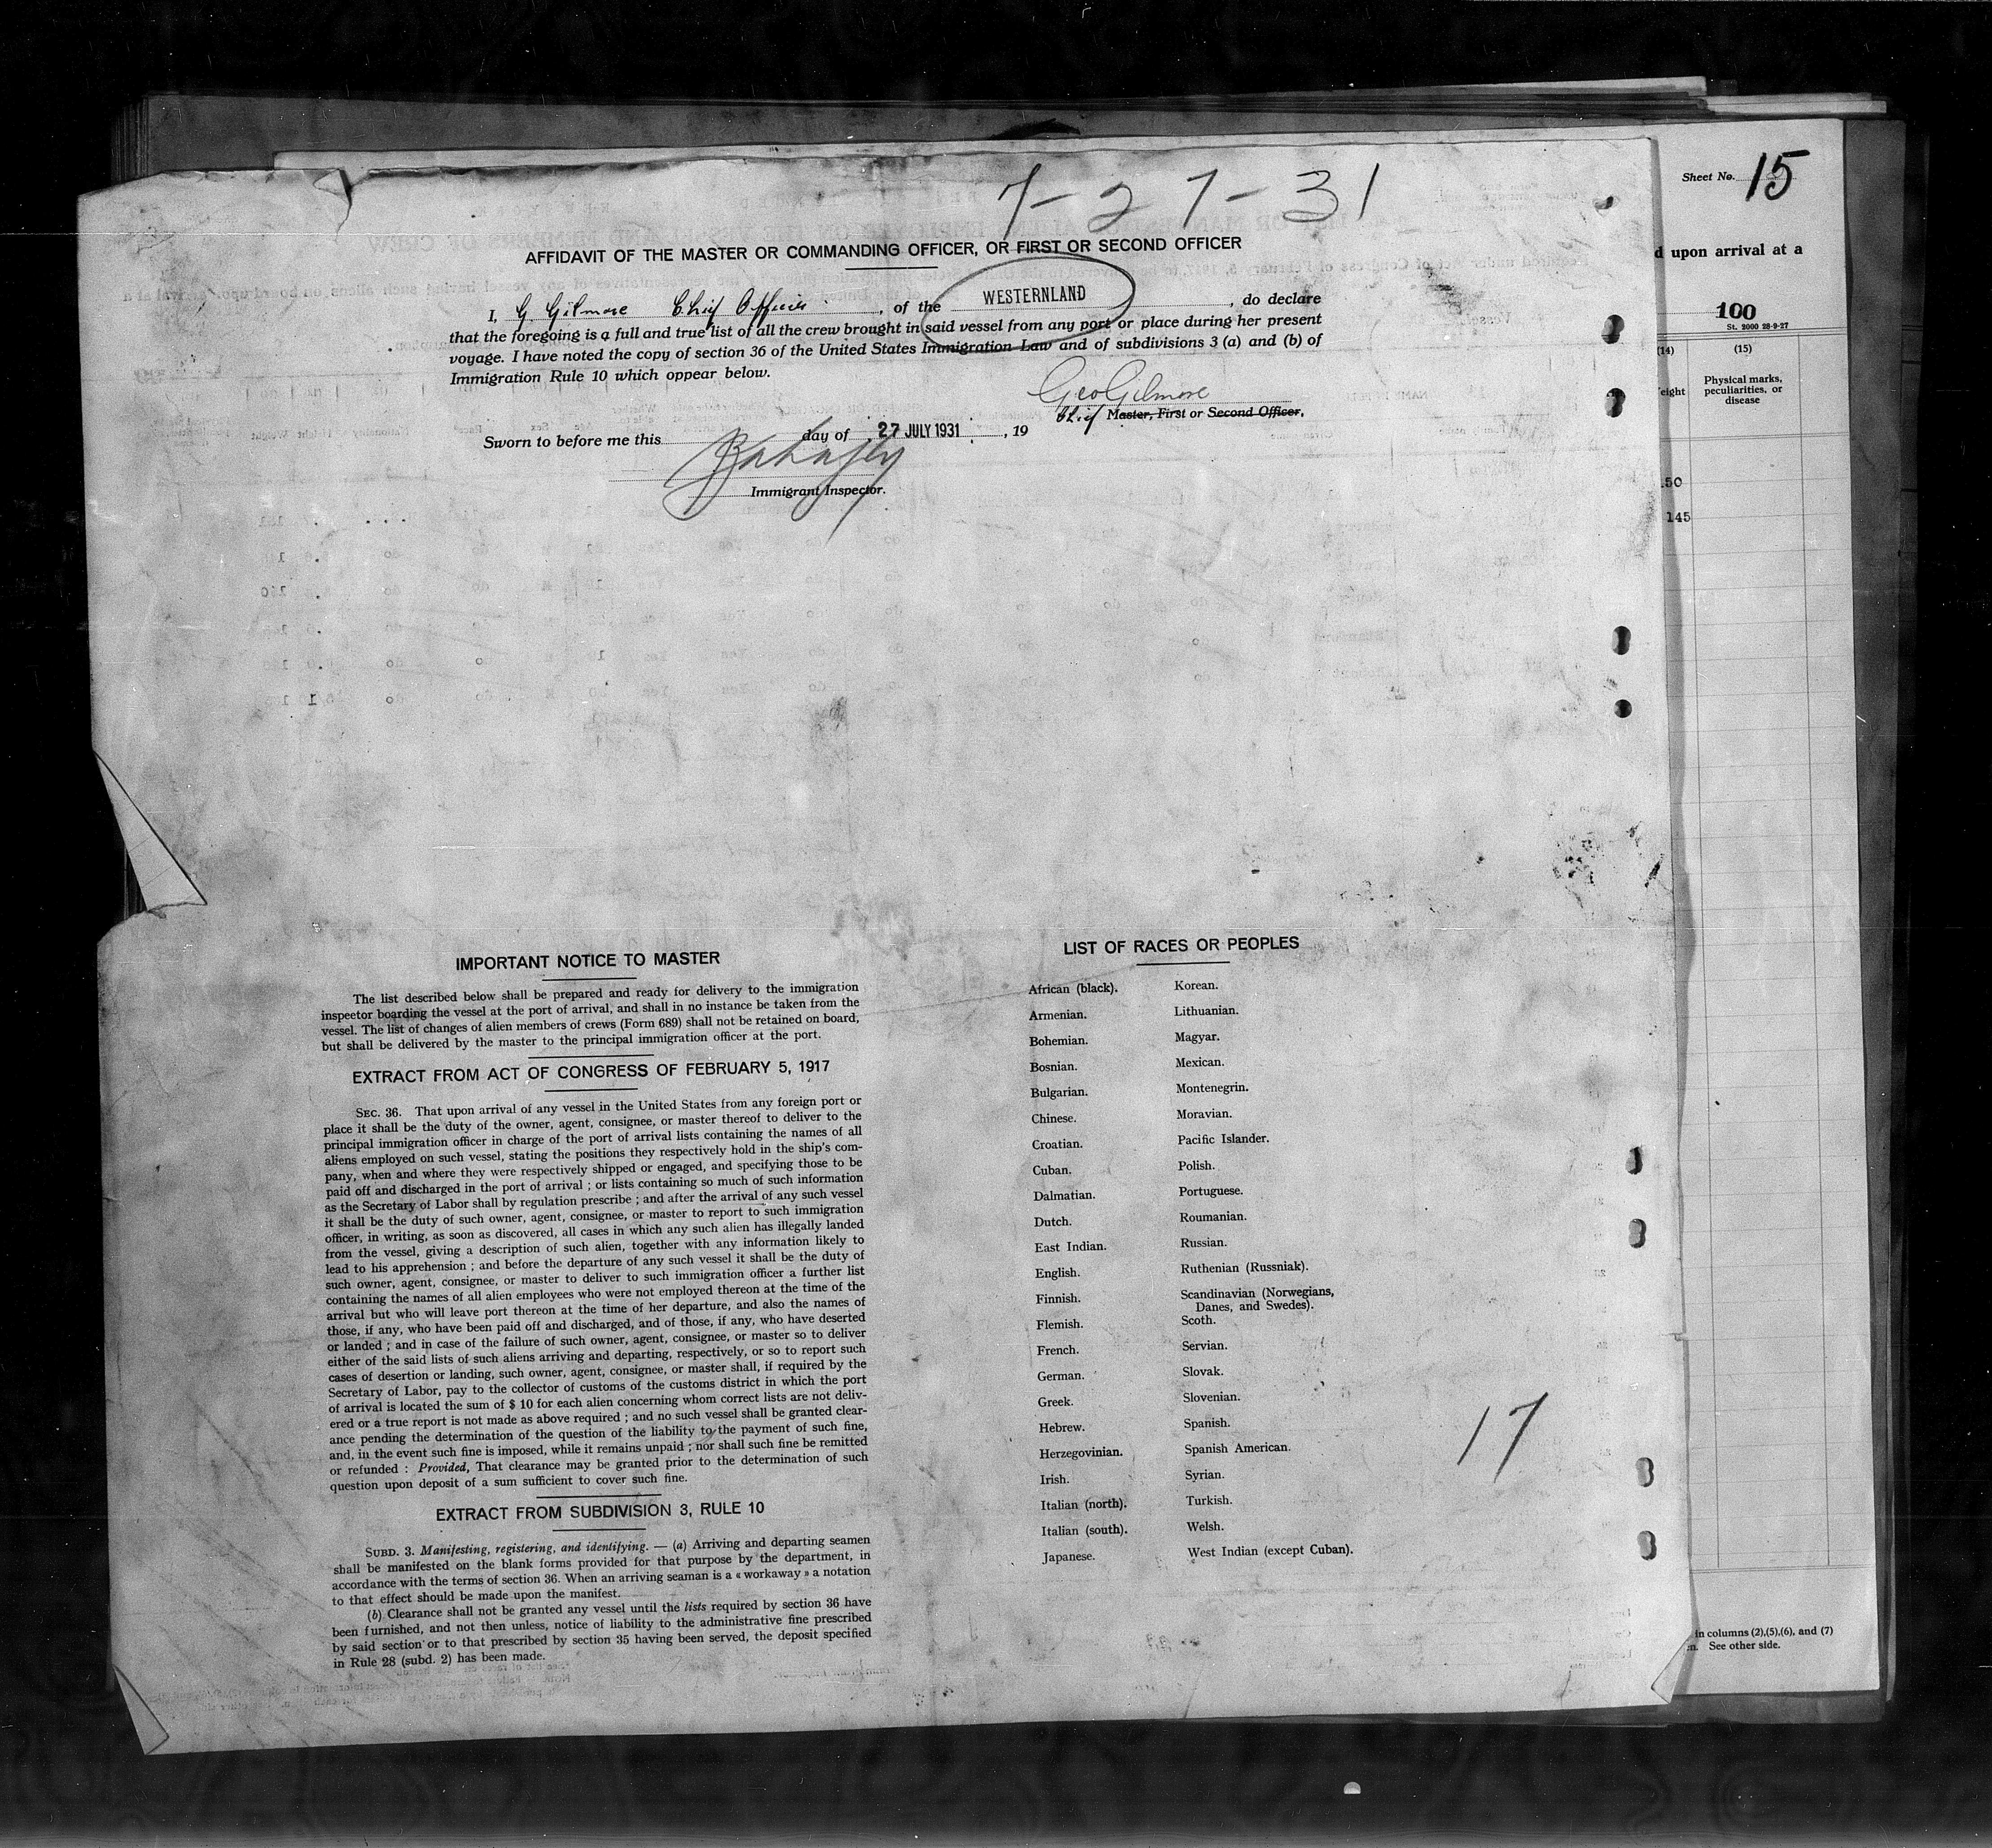 7-27-31
Sheet No. 15
AFFIDAVIT OF THE MASTER OR COMMANDING OFFICER, OR FIRST OR SECOND OFFICER
d upon arrival at a
I, G. Gilmore Chief Officer, of the WESTERNLAND, do declare
that the foregoing is a full and true list of all the crew brought in said vessel from any port or place during her present
voyage. I have noted the copy of section 36 of the United States Immigration Law and of subdivisions 3 (a) and (b) of
Immigration Rule 10 which appear below.
100
St. 2000 28-9-27
(14)
(15)
eight
Physical marks,
peculiarities, or
disease
Geo Gilmore
Chief Master, First or Second Officer,
Sworn to before me this day of 27 JULY 1931, 19
Immigrant Inspector.
50
145
IMPORTANT NOTICE TO MASTER
The list described below shall be prepared and ready for delivery to the immigration
inspector boarding the vessel at the port of arrival, and shall in no instance be taken from the
vessel. The list of changes of alien members of crews (Form 689) shall not be retained on board,
but shall be delivered by the master to the principal immigration officer at the port.
EXTRACT FROM ACT OF CONGRESS OF FEBRUARY 5, 1917
SEC. 36. That upon arrival of any vessel in the United States from any foreign port or
place it shall be the duty of the owner, agent, consignee, or master thereof to deliver to the
principal immigration officer in charge of the port of arrival lists containing the names of all
aliens employed on such vessel, stating the positions they respectively hold in the ship's com-
pany, when and where they were respectively shipped or engaged, and specifying those to be
paid off and discharged in the port of arrival ; or lists containing so much of such information
as the Secretary of Labor shall by regulation prescribe ; and after the arrival of any such vessel
it shall be the duty of such owner, agent, consignee, or master to report to such immigration
officer, in writing, as soon as discovered, all cases in which any such alien has illegally landed
from the vessel, giving a description of such alien, together with any information likely to
lead to his apprehension ; and before the departure of any such vessel it shall be the duty of
such owner, agent, consignee, or master to deliver to such immigration officer a further list
containing the names of all alien employees who were not employed thereon at the time of the
arrival but who will leave port thereon at the time of her departure, and also the names of
those, if any, who have been paid off and discharged, and of those, if any, who have deserted
or landed ; and in case of the failure of such owner, agent, consignee, or master so to deliver
either of the said lists of such aliens arriving and departing, respectively, or so to report such
cases of desertion or landing, such owner, agent, consignee, or master shall, if required by the
Secretary of Labor, pay to the collector of customs of the customs district in which the port
of arrival is located the sum of $ 10 for each alien concerning whom correct lists are not deliv-
ered or a true report is not made as above required ; and no such vessel shall be granted clear-
ance pending the determination of the question of the liability to the payment of such fine,
and, in the event such fine is imposed, while it remains unpaid ; nor shall such fine be remitted
or refunded : Provided, That clearance may be granted prior to the determination of such
question upon deposit of a sum sufficient to cover such fine.
EXTRACT FROM SUBDIVISION 3, RULE 10
SUBD. 3. Manifesting, registering, and identifying. — (a) Arriving and departing seamen
shall be manifested on the blank forms provided for that purpose by the department, in
accordance with the terms of section 36. When an arriving seaman is a « workaway » a notation
to that effect should be made upon the manifest.
(b) Clearance shall not be granted any vessel until the lists required by section 36 have
been furnished, and not then unless, notice of liability to the administrative fine prescribed
by said section or to that prescribed by section 35 having been served, the deposit specified
in Rule 28 (subd. 2) has been made.
LIST OF RACES OR PEOPLES
African (black).
Armenian.
Bohemian.
Bosnian.
Bulgarian.
Chinese.
Croatian.
Cuban.
Dalmatian.
Dutch.
East Indian.
English.
Finnish.
Flemish.
French.
German.
Greek.
Hebrew.
Herzegovinian.
Irish.
Italian (north).
Italian (south).
Japanese.
Korean.
Lithuanian.
Magyar.
Mexican.
Montenegrin.
Moravian.
Pacific Islander.
Polish.
Portuguese.
Roumanian.
Russian.
Ruthenian (Russniak).
Scandinavian (Norwegians,
Danes, and Swedes).
Scoth.
Servian.
Slovak.
Slovenian.
Spanish.
Spanish American.
Syrian.
Turkish.
Welsh.
West Indian (except Cuban).
17
in columns (2),(5),(6), and (7)
n. See other side.